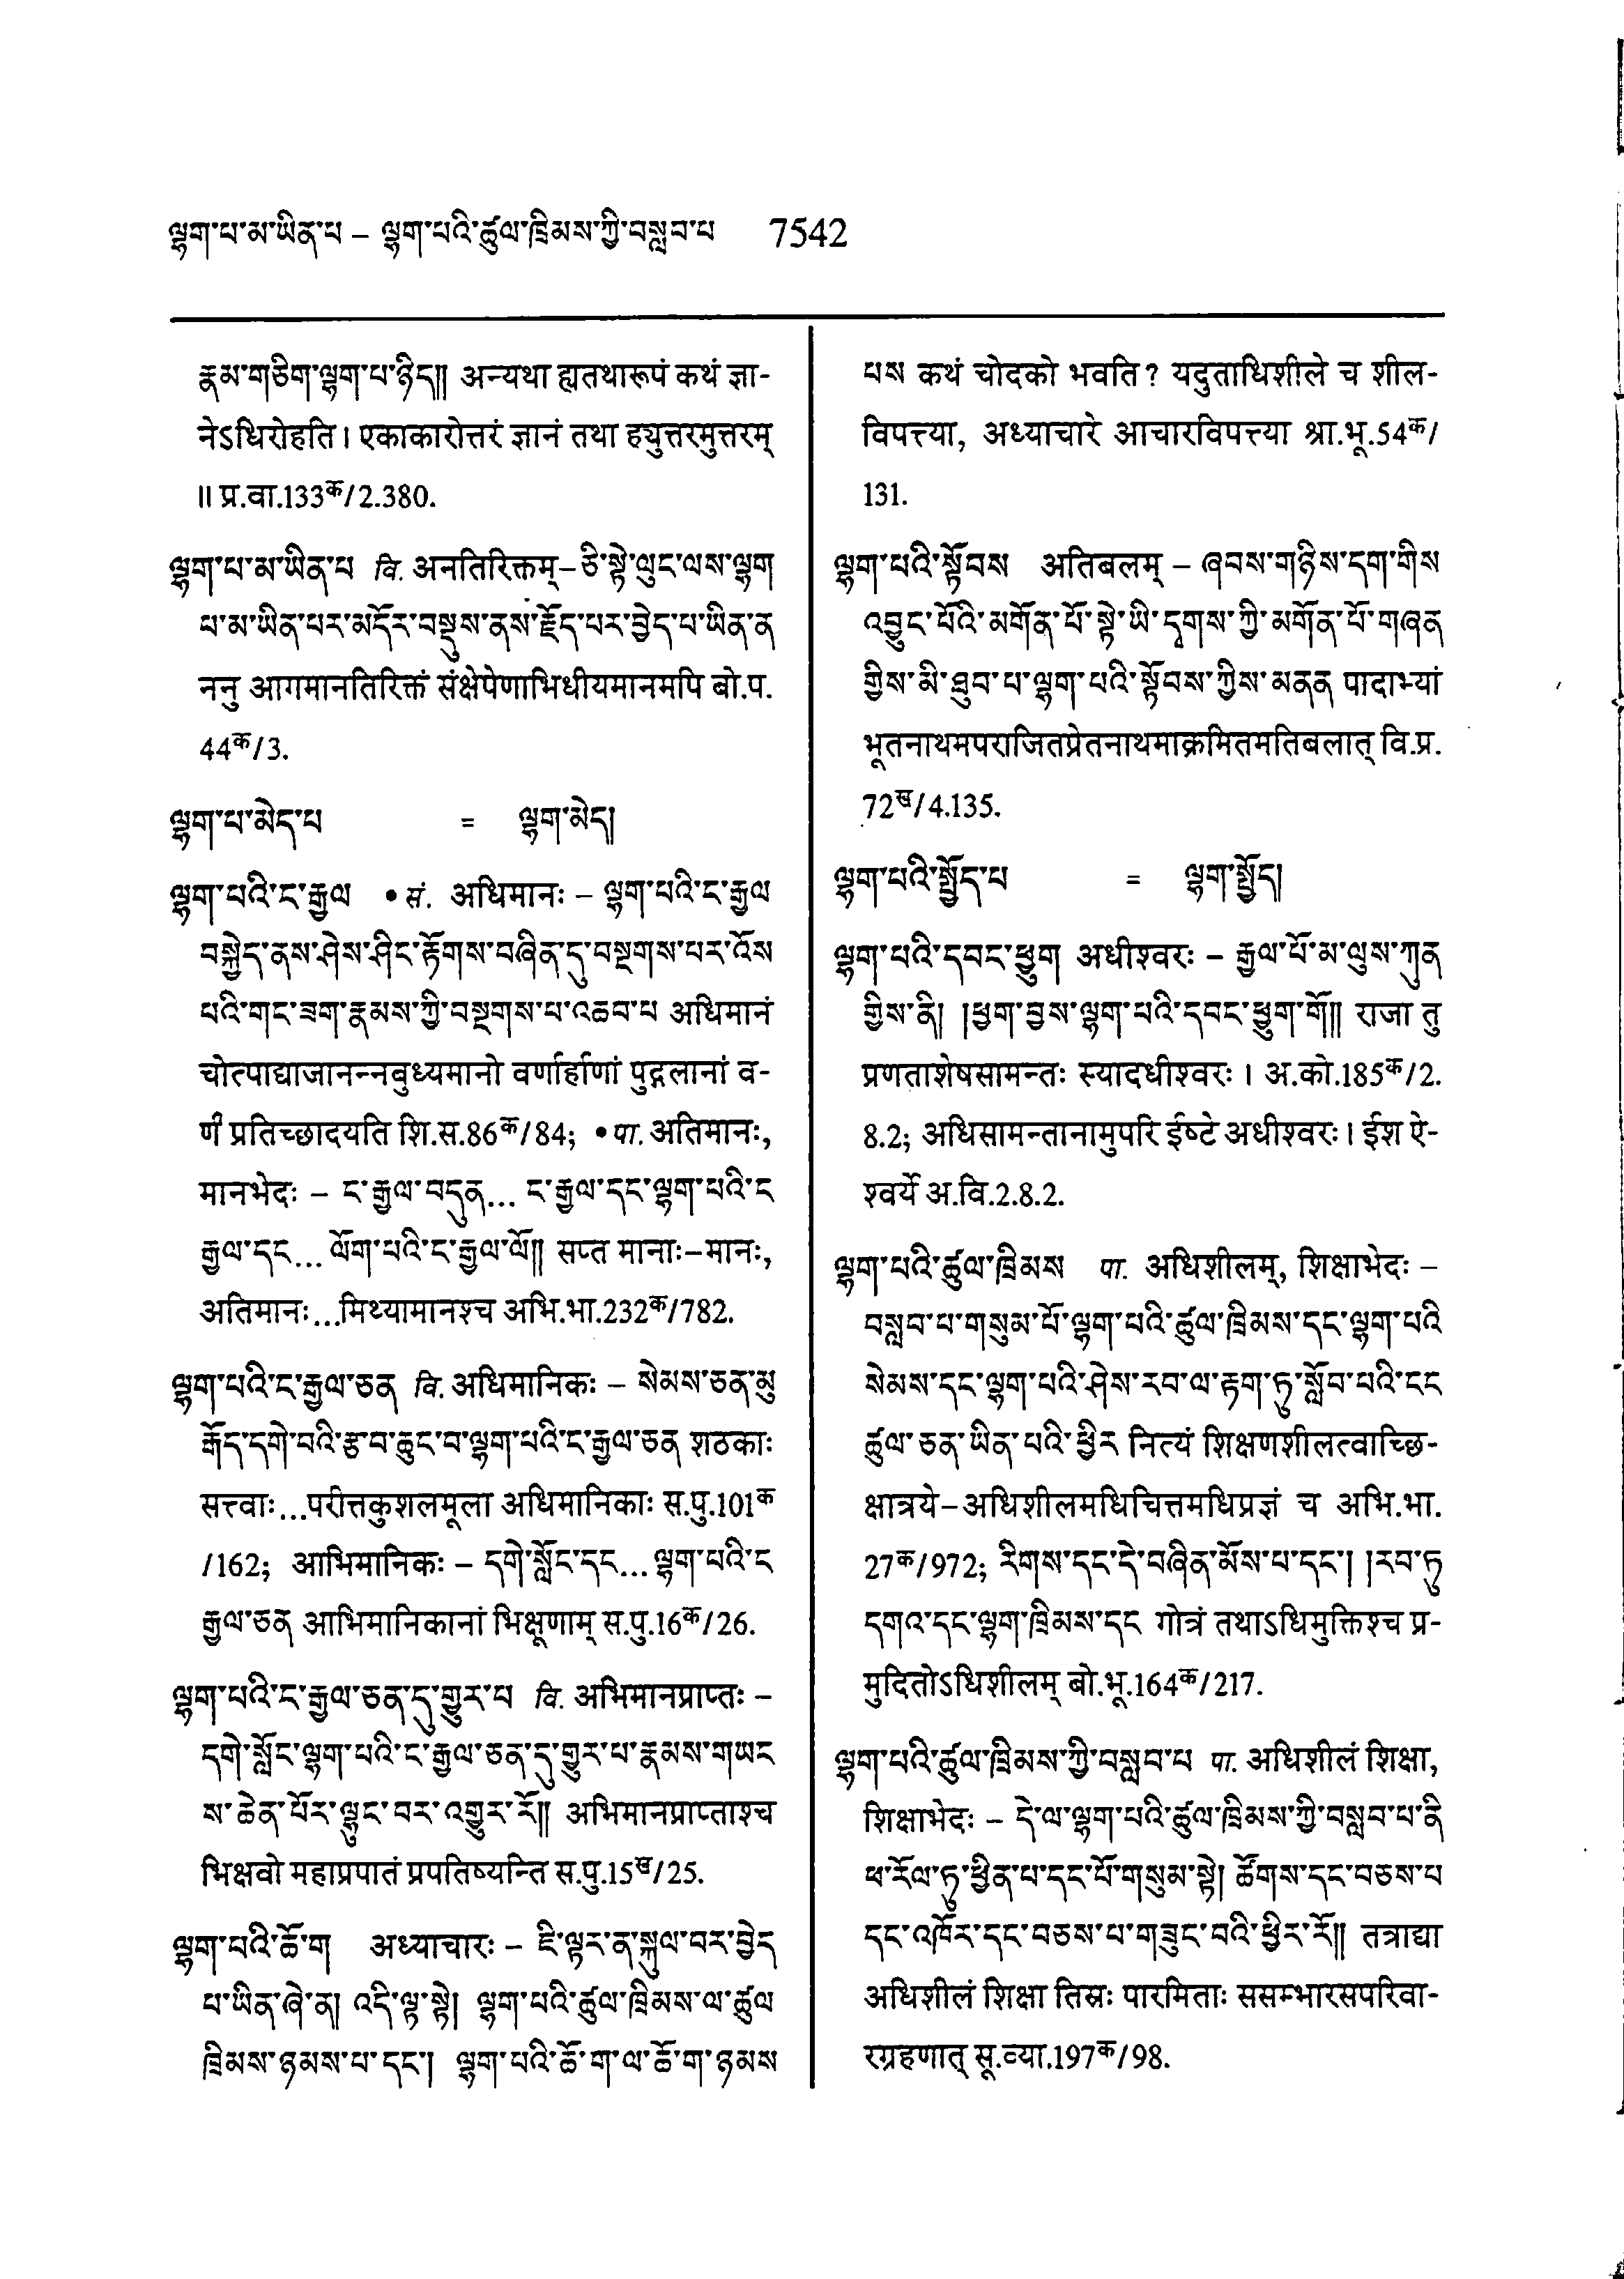 ལྷག་པ་མ་ཡིན་པ – ལྷག་པའི་ཚུལ་ཁྲིམས་ཀྱི་བསླབ་པ 7542
རྣམ་གཅིག་ལྷག་པ་ཉིད།། अन्यथा ह्यतथारूपं कथं ज्ञा-
नेऽधिरोहति । एकाकारोत्तरं ज्ञानं तथा ह्युत्तरमुत्तरम्
॥ प्र.वा.133क/2.380.
ལྷག་པ་མ་ཡིན་པ वि. अनतिरिक्तम्–ཅི་སྟེ་ལུང་ལས་ལྷག
པ་མ་ཡིན་པར་མདོར་བསྡུས་ནས་རྗོད་པར་བྱེད་པ་ཡིན་ན
ननु आगमानतिरिक्तं संक्षेपेणाभिधीयमानमपि बो.प.
44क/3.
ལྷག་པ་མེད་པ = ལྷག་མེད།
ལྷག་པའི་ང་རྒྱལ • सं. अधिमानः – ལྷག་པའི་ང་རྒྱལ
བསྐྱེད་ནས་ཤེས་ཤིང་རྟོགས་བཞིན་དུ་བསྔགས་པར་འོས
པའི་གང་ཟག་རྣམས་ཀྱི་བསྔགས་པ་འཆབ་པ अधिमानं
चोत्पाद्याजानन्नवुध्यमानो वर्णार्हाणां पुद्गलानां व-
र्णं प्रतिच्छादयति शि.स.86क/84; • पा. अतिमानः,
मानभेदः – ང་རྒྱལ་བདུན... ང་རྒྱལ་དང་ལྷག་པའི་ང
རྒྱལ་དང... ལོག་པའི་ང་རྒྱལ་ལོ།། सप्त मानाः–मानः,
अतिमानः...मिथ्यामानश्च अभि.भा.232क/782.
ལྷག་པའི་ང་རྒྱལ་ཅན वि. अधिमानिकः – སེམས་ཅན་མུ
རྒོད་དགེ་བའི་རྩ་བ་ཆུང་བ་ལྷག་པའི་ང་རྒྱལ་ཅན शठकाः
सत्त्वाः...परीत्तकुशलमूला अधिमानिकाः स.पु.101क
/162; आभिमानिकः – དགེ་སློང་དང... ལྷག་པའི་ང
རྒྱལ་ཅན आभिमानिकानां भिक्षूणाम् स.पु.16क/26.
ལྷག་པའི་ང་རྒྱལ་ཅན་དུ་གྱུར་པ वि. अभिमानप्राप्तः –
དགེ་སློང་ལྷག་པའི་ང་རྒྱལ་ཅན་དུ་གྱུར་པ་རྣམས་གཡང
ས་ཆེན་པོར་ལྷུང་བར་འགྱུར་རོ།། अभिमानप्राप्ताश्च
भिक्षवो महाप्रपातं प्रपतिष्यन्ति स.पु.15ख/25.
ལྷག་པའི་ཆོ་ག अध्याचारः – ཇི་ལྟར་ན་སྐུལ་བར་བྱེད
པ་ཡིན་ཞེ་ན། འདི་ལྟ་སྟེ། ལྷག་པའི་ཚུལ་ཁྲིམས་ལ་ཚུལ
ཁྲིམས་ཉམས་པ་དང་། ལྷག་པའི་ཆོ་ག་ལ་ཆོ་ག་ཉམས
པས कथं चोदको भवति? यदुताधिशीले च शील-
विपत्त्या, अध्याचारे आचारविपत्त्या श्रा.भू.54क/
131.
ལྷག་པའི་སྟོབས अतिबलम् – ཞབས་གཉིས་དག་གིས
འབྱུང་པོའི་མགོན་པོ་སྟེ་ཡི་དྭགས་ཀྱི་མགོན་པོ་གཞན
གྱིས་མི་ཐུབ་པ་ལྷག་པའི་སྟོབས་ཀྱིས་མནན पादाभ्यां
भूतनाथमपराजितप्रेतनाथमाक्रमितमतिबलात् वि.प्र.
72ख/4.135.
ལྷག་པའི་སྤྱོད་པ = ལྷག་སྤྱོད།
ལྷག་པའི་དབང་ཕྱུག अधीश्वरः – རྒྱལ་པོ་མ་ལུས་ཀུན
གྱིས་ནི། །ཕྱག་བྱས་ལྷག་པའི་དབང་ཕྱུག་གོ།། राजा तु
प्रणताशेषसामन्तः स्यादधीश्वरः । अ.को.185क/2.
8.2; अधिसामन्तानामुपरि ईष्टे अधीश्वरः । ईश ऐ-
श्वर्ये अ.वि.2.8.2.
ལྷག་པའི་ཚུལ་ཁྲིམས पा. अधिशीलम्, शिक्षाभेदः –
བསླབ་པ་གསུམ་པོ་ལྷག་པའི་ཚུལ་ཁྲིམས་དང་ལྷག་པའི
སེམས་དང་ལྷག་པའི་ཤེས་རབ་ལ་རྟག་ཏུ་སློབ་པའི་ངང
ཚུལ་ཅན་ཡིན་པའི་ཕྱིར नित्यं शिक्षणशीलत्वाच्छि-
क्षात्रये–अधिशीलमधिचित्तमधिप्रज्ञं च अभि.भा.
27क/972; རིགས་དང་དེ་བཞིན་མོས་པ་དང་། །རབ་ཏུ
དགའ་དང་ལྷག་ཁྲིམས་དང गोत्रं तथाऽधिमुक्तिश्च प्र-
मुदितोऽधिशीलम् बो.भू.164क/217.
ལྷག་པའི་ཚུལ་ཁྲིམས་ཀྱི་བསླབ་པ पा. अधिशीलं शिक्षा,
शिक्षाभेदः – དེ་ལ་ལྷག་པའི་ཚུལ་ཁྲིམས་ཀྱི་བསླབ་པ་ནི
ཕ་རོལ་ཏུ་ཕྱིན་པ་དང་པོ་གསུམ་སྟེ། ཚོགས་དང་བཅས་པ
དང་འཁོར་དང་བཅས་པ་གཟུང་བའི་ཕྱིར་རོ།། तत्राद्या
अधिशीलं शिक्षा तिस्रः पारमिताः ससम्भारसपरिवा-
रग्रहणात् सू.व्या.197क/98.